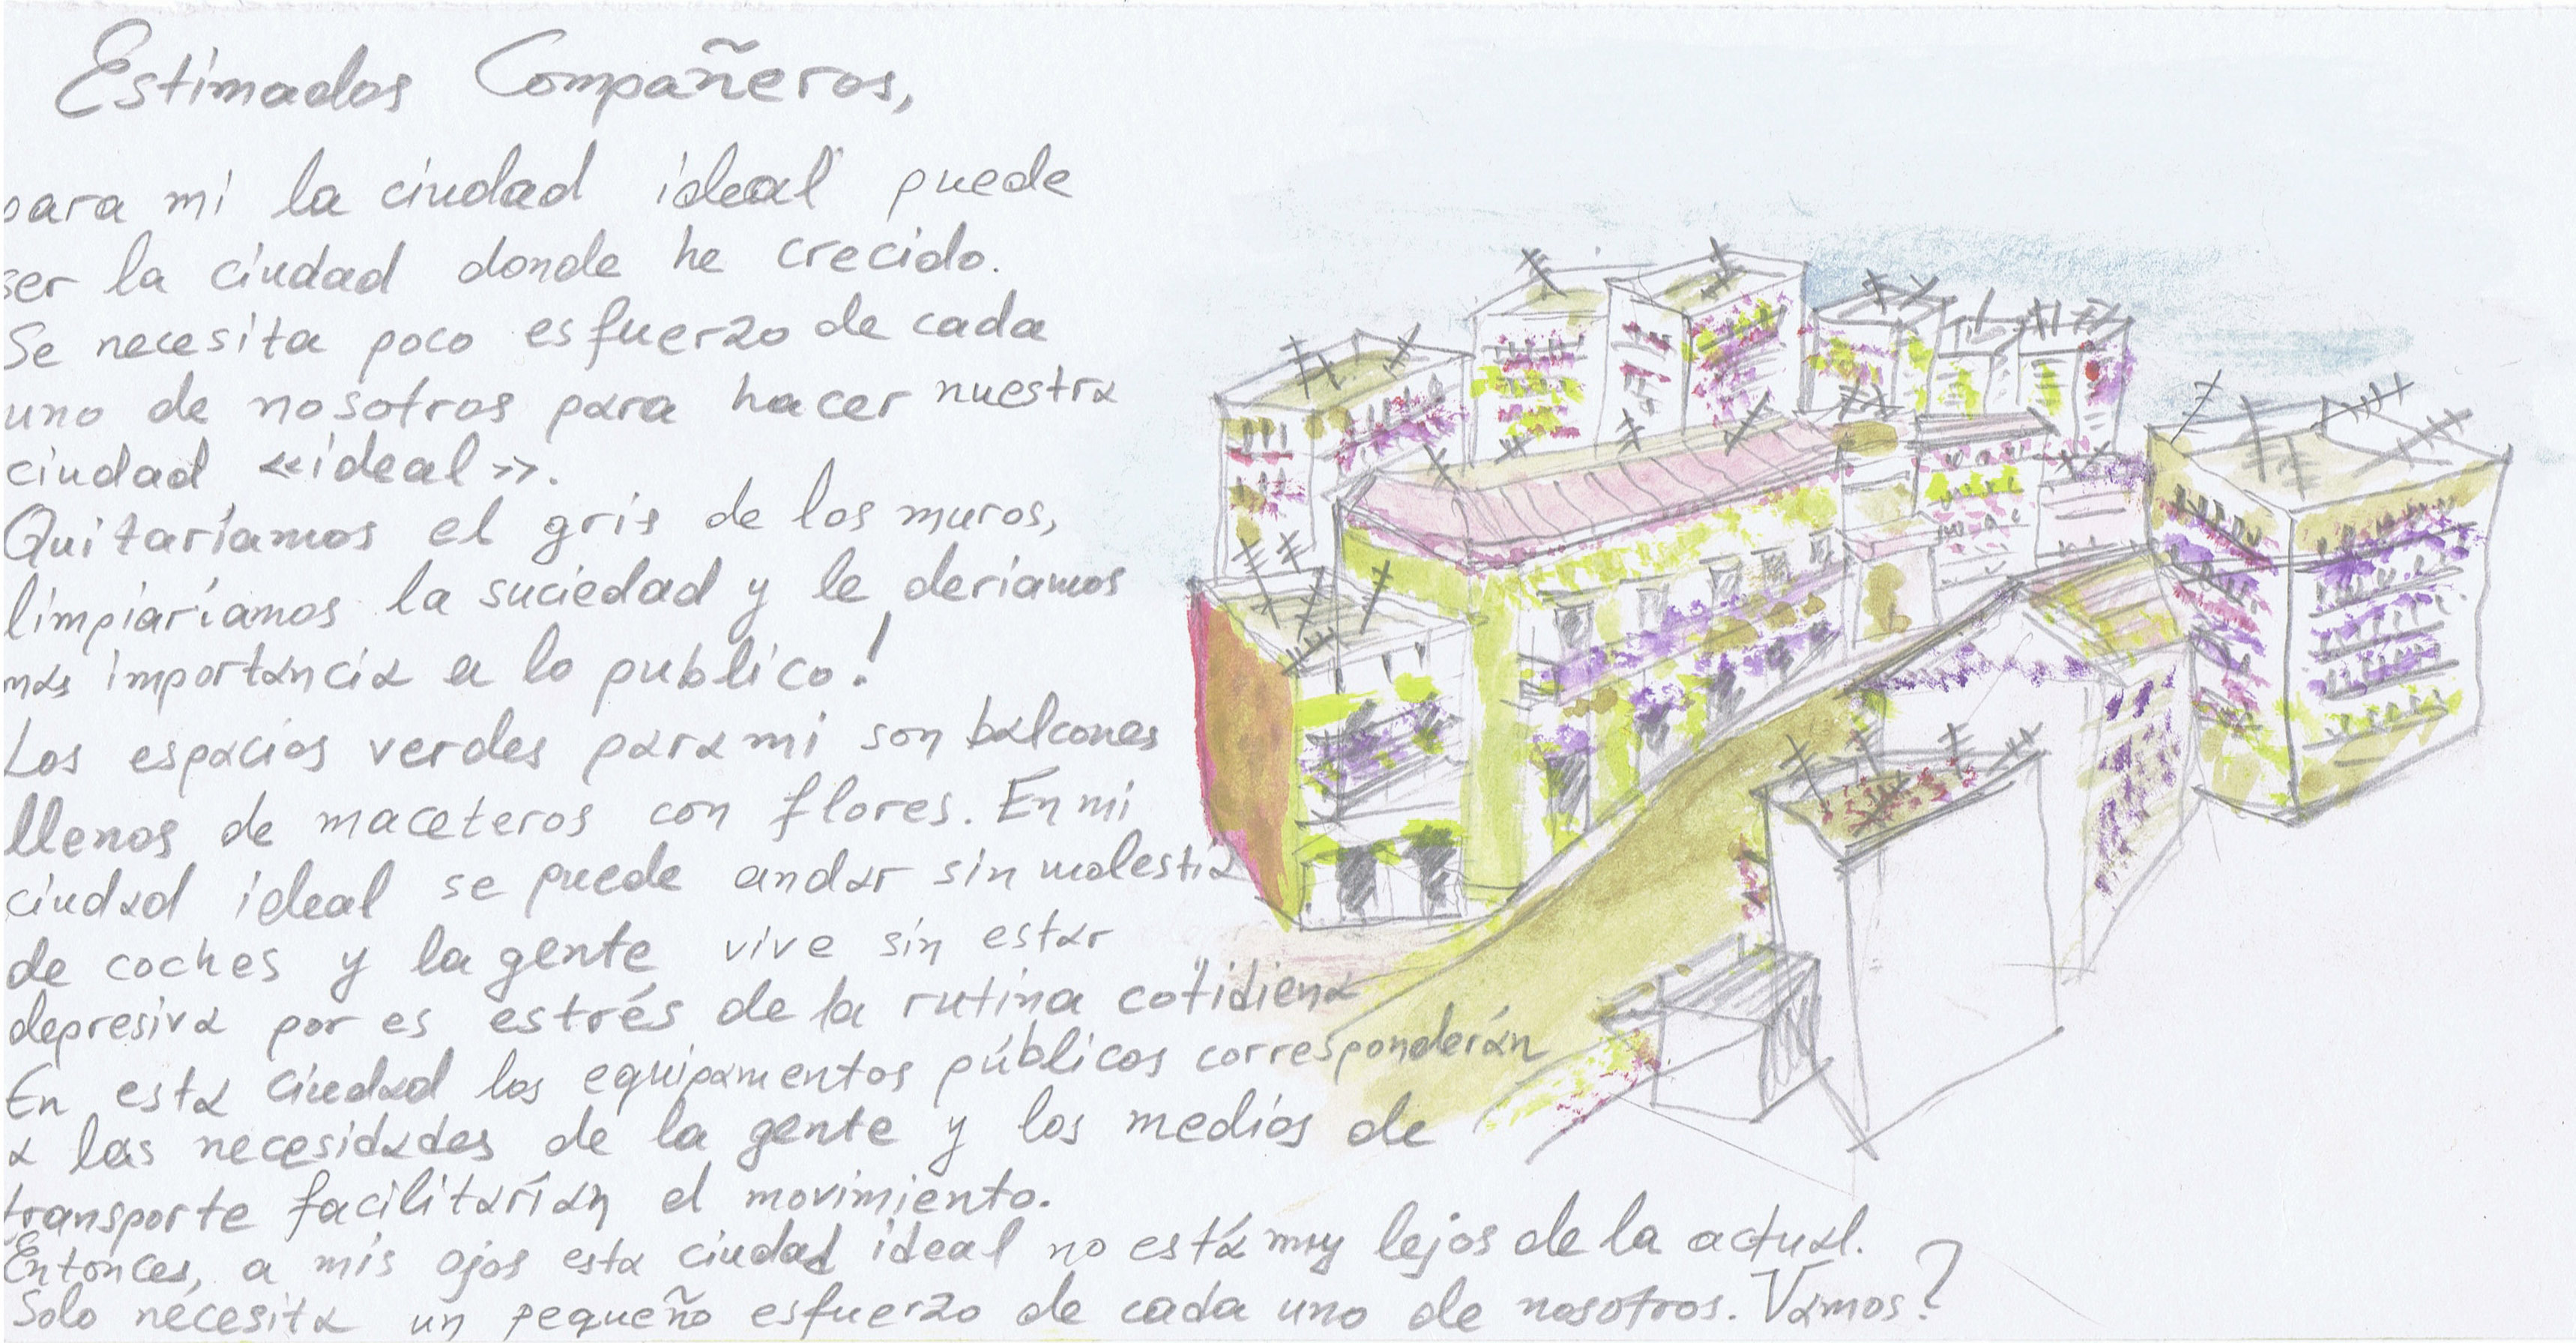 Estimados Compañeros,
para mi la ciudad ideal puede
ser la ciudad donde he crecido.
Se necesita poco esfuerzo de cada
uno de nosotros para hacer nuestra
ciudad «ideal».
Quitaríamos el gris de los muros,
limpiaríamos la suciedad y le deriamos
mas importancia a lo publico!
Los espacios verdes para mi son balcones
llenos de maceteros con flores. En mi
ciudad ideal se puede andar sin molestia
de coches y la gente vive sin estar
depresiva por es estrés de la rutina cotidiena
En esta ciudad los equipamentos públicos corresponderán
a las necesidades de la gente y los medios de
transporte facilitarían el movimiento.
Entonces, a mis ojos esta ciudad ideal no está muy lejos de la actual.
Solo necesita un pequeño esfuerzo de cada uno de nosotros. Vamos?